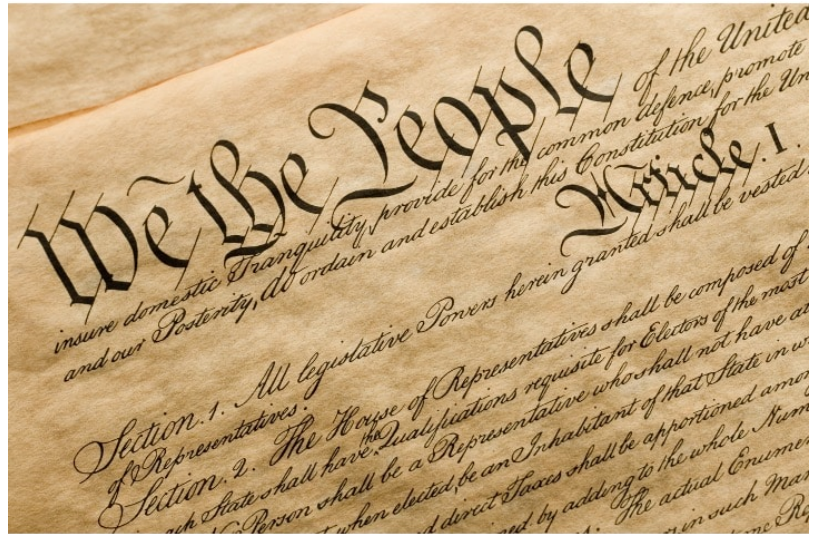 We the People of the United
insure domestic Tranquility, provide for the common defence, promote
and our Posterity, do ordain and establish this Constitution for the Un
Article. I.
Section. 1. All legislative Powers herein granted shall be vested
of Representatives.
Section. 2. The House of Representatives shall be composed of
ach State shall have the Qualifications requisite for Electors of the most
Person shall be a Representative who shall not have at
when elected, be an Inhabitant of that State in w
d direct Taxes shall be apportioned amon
ned by adding to the whole Num
The actual Enume
in such Man